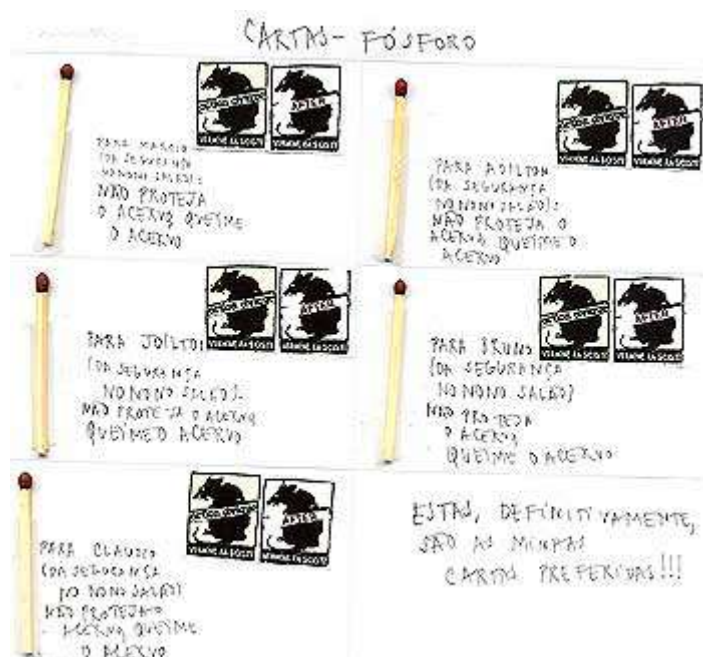 CARTAS-FÓSFORO
AFTER
PARA MARCIO
(DA SEGURANÇA
NO NONO SALÃO):
NÃO PROTEJA
O ACERVO, QUEIME
O ACERVO
AFTER
PARA ADILTON
(DA SEGURANÇA
NO NONO SALÃO):
NÃO PROTEJA O
ACERVO, QUEIME O
ACERVO
AFTER
PARA JOILTON
(DA SEGURANÇA
NO NONO SALÃO):
NÃO PROTEJA O ACERVO,
QUEIME O ACERVO
AFTER
PARA BRUNO
(DA SEGURANÇA
NO NONO SALÃO)
NÃO PROTEJA
O ACERVO,
QUEIME O ACERVO
AFTER
PARA CLAUDIO
(DA SEGURANÇA
NO NONO SALÃO)
NÃO PROTEJA O
ACERVO, QUEIME
O ACERVO
ESTAS, DEFINITIVAMENTE,
SÃO AS MINHAS
CARTAS PREFERIDAS!!!